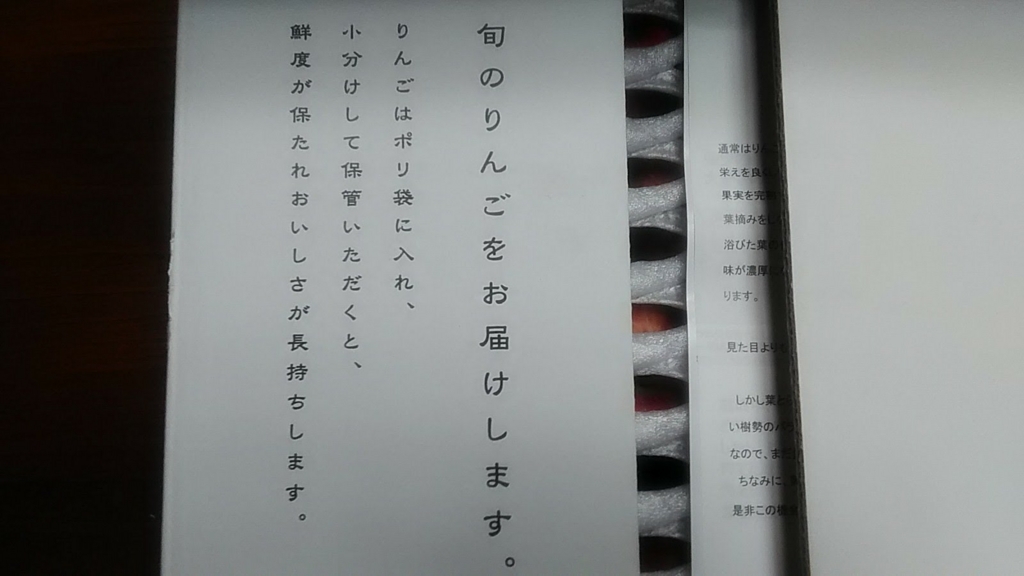 旬のりんごをお届けします。
りんごはポリ袋に入れ、
小分けして保管いただくと、
鮮度が保たれおいしさが長持ちします。
通常はり
栄えを良
果実を完
葉摘みを
浴びた葉
味が濃厚
ります。
見た目より
しかし葉
い樹勢のバ
なので、また
ちなみに、
是非この機